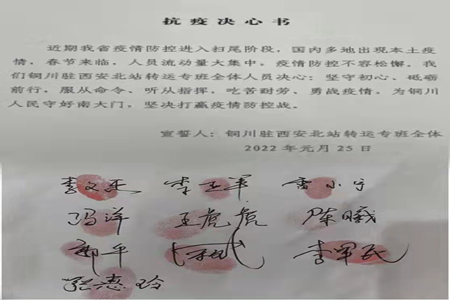 抗疫决心书
近期我省疫情防控进入扫尾阶段，国内多地出现本土疫
情，春节来临，人员流动量大集中，疫情防控不容松懈，我
们铜川驻西安北站转运专班全体人员决心：坚守初心、砥砺
前行，服从命令、听从指挥，吃苦耐劳、勇战疫情，为铜川
人民守好南大门，坚决打赢疫情防控战。
宣誓人：铜川驻西安北站转运专班全体
2022年元月25日
李文杰 李玉军 雷小宁
冯洋 王虎虎 陈曦
郭平 李军民
张惠玲